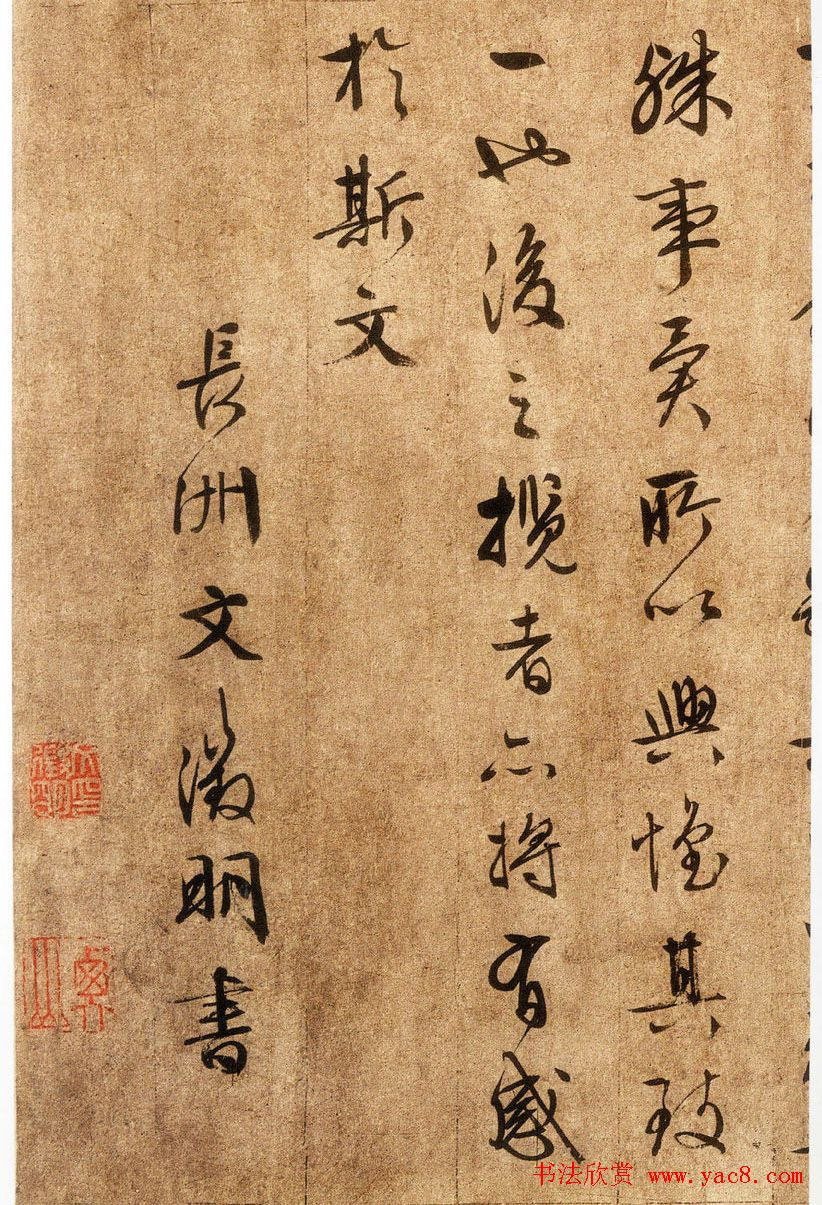 殊事異所以興懷其致
一也後之攬者亦將有感
於斯文
長洲文徵明書
书法欣赏 www.yac8.com